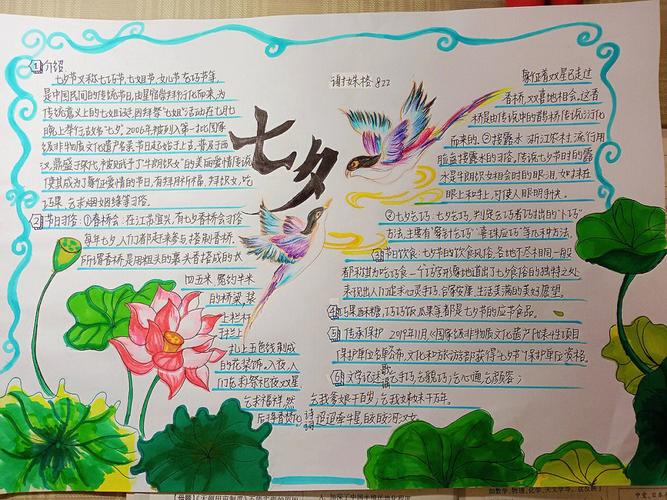 ①介绍
七夕节又称七巧节、七姐节、女儿节、乞巧节等,
是中国民间的传统节日,由星宿崇拜衍化而来,为
传统意义上的七姐诞,因拜祭“七姐”活动在七月七
晚上举行,故名“七夕”。2006年,被列入第一批国家
级非物质文化遗产名录。节日起始于上古,普及于西
汉,鼎盛于宋代,被赋予了“牛郎织女”的美丽爱情传说
使其成为了象征爱情的节日,有拜月祈福、拜织女、吃
巧果、乞求姻缘等习俗。
②节日习俗:①香桥会:在江苏宜兴,有七夕香桥会习俗
每年七夕,人们都赶来参与,搭制香桥。
所谓香桥,是用粗长的裹头香搭成的长
四五米、宽约半米
的桥梁,装
上栏杆
于栏杆
扎上五色线制成
的花装饰。入夜,人
们礼祭祀夜双星
乞求福祥,然
后将香桥化
七夕
谢姝格 822
象征着双星已走过
香桥,欢喜地相会。这香
桥是由传说中的鹊桥传说衍化
而来的。②接露水:浙江农村,流行用
脸盆接露水的习俗。传说七夕节时的露
水是牛郎织女相会时的眼泪,如抹在
眼上和手上,可使人眼明手快。
③七夕乞巧:七夕乞巧,判断乞巧者巧拙的“卜巧”
方法,主要有“穿针乞巧”“喜蛛应巧”等几种方法。
③节日饮食:七夕节的饮食风俗,各地不尽相同,一般
都称其为吃巧食,一个巧字形象地道出了七夕食俗的独特之处
表现出人们追求心灵手巧、合家安康、生活美满的美好愿望。
④巧果酥糖、巧巧饭、瓜果等都是七夕节的应节食品。
⑤传承保护:2019年11月,《国家级非物质文化遗产代表性项目
保护单位名单》公布,文化和旅游部获得“七夕节”保护单位资格。
⑥文字记述:歌谣:乞手巧,乞貌巧;乞心通,乞颜容;
乞我爹娘千百岁,乞我姊妹千万年。
诗词:迢迢牵牛星,皎皎河汉女。